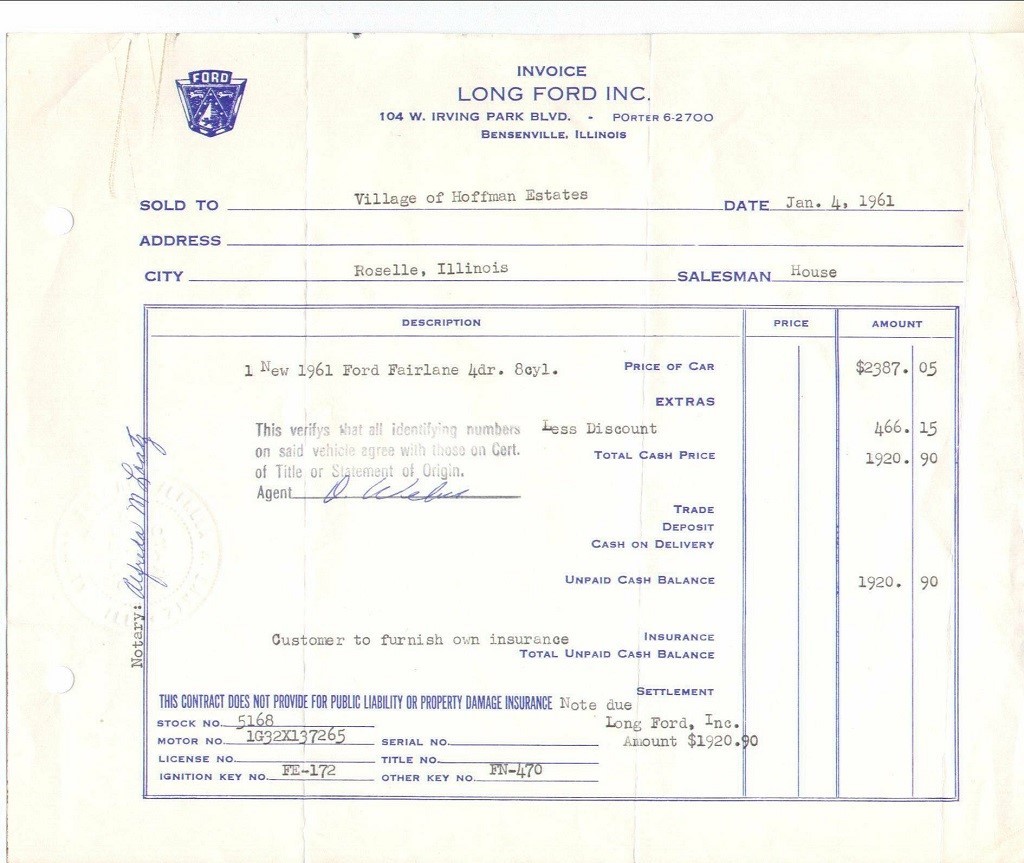 FORD
INVOICE
LONG FORD INC.
104 W. IRVING PARK BLVD. - PORTER 6-2700
BENSENVILLE, ILLINOIS
SOLD TO Village of Hoffman Estates DATE Jan. 4, 1961
ADDRESS
CITY Roselle, Illinois SALESMAN House
DESCRIPTION PRICE AMOUNT
1 New 1961 Ford Fairlane 4dr. 8cyl. PRICE OF CAR $2387. 05
EXTRAS
This verifys that all identifying numbers Less Discount 466. 15
on said vehicle agree with those on Cert. TOTAL CASH PRICE 1920. 90
of Title or Statement of Origin.
Agent
TRADE
DEPOSIT
CASH ON DELIVERY
UNPAID CASH BALANCE 1920. 90
Notary: Alfreda M
Customer to furnish own insurance INSURANCE
TOTAL UNPAID CASH BALANCE
SETTLEMENT
THIS CONTRACT DOES NOT PROVIDE FOR PUBLIC LIABILITY OR PROPERTY DAMAGE INSURANCE Note due
STOCK NO. 5168 Long Ford, Inc.
MOTOR NO. 1G32X137265 SERIAL NO. Amount $1920.90
LICENSE NO. TITLE NO.
IGNITION KEY NO. FE-172 OTHER KEY NO. FN-470